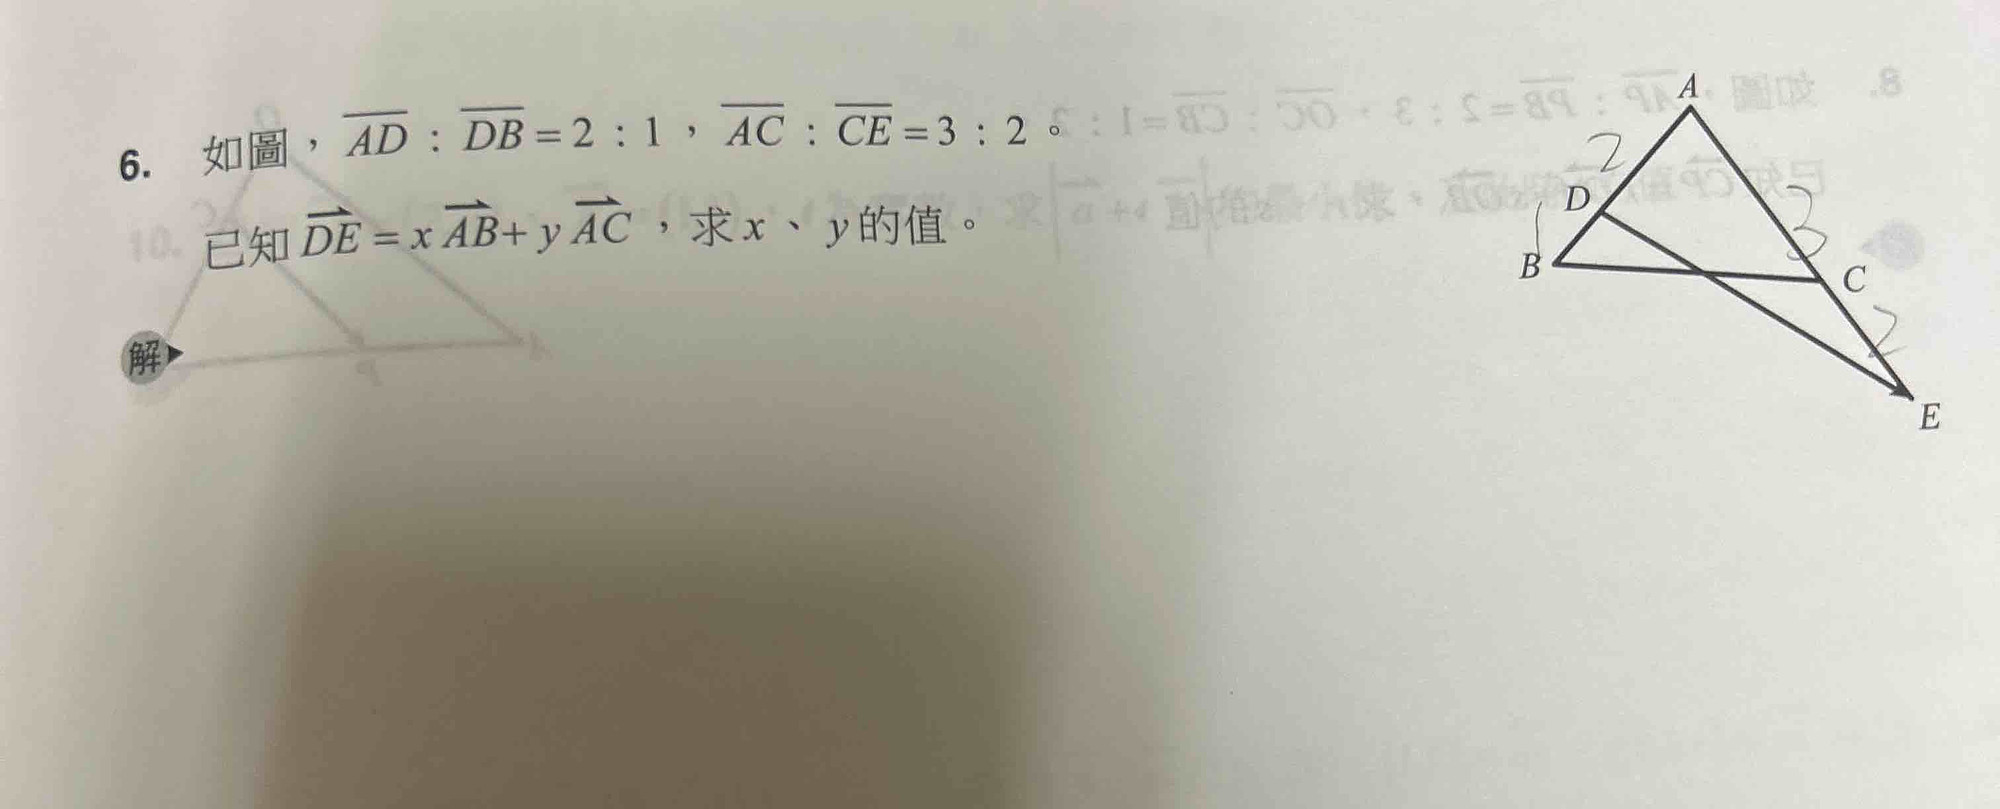 6. 如圖，AD：DB=2：1，AC：CE=3：2。
已知DE=xAB+yAC，求x、y的值。
解
A
2
D
3
1
B
C
2
E